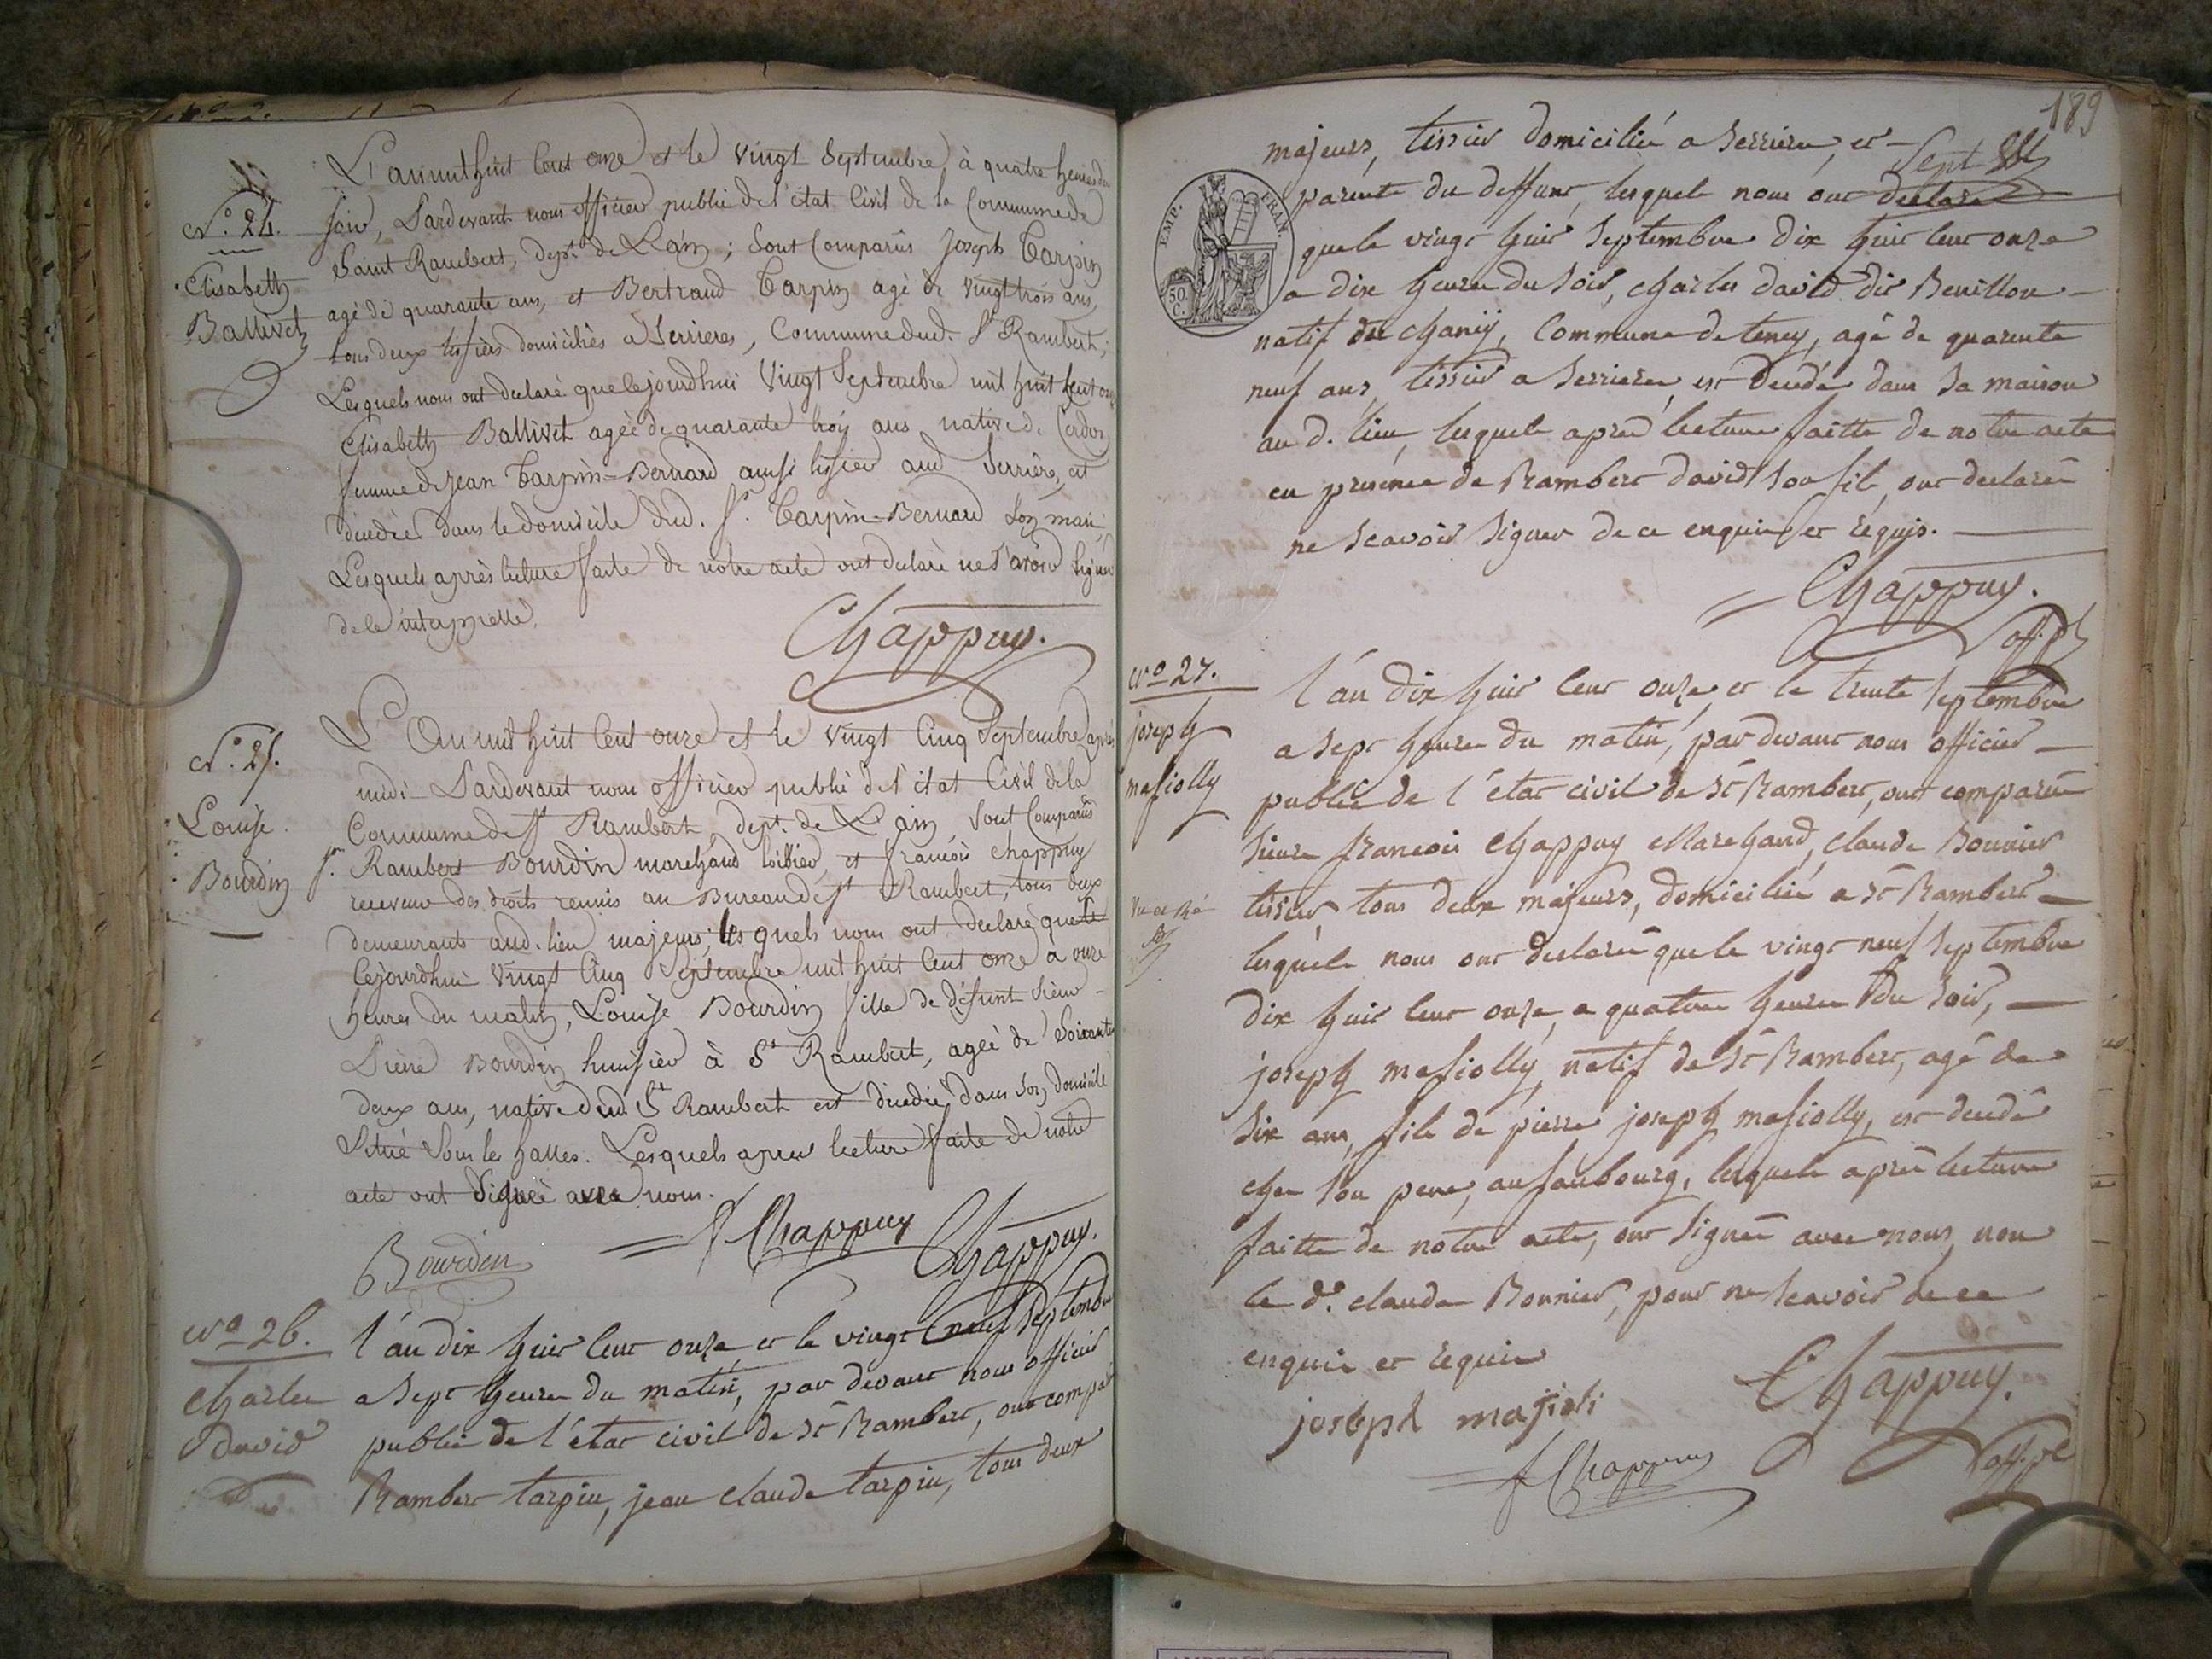 N.° 24.
Elisabeth
Ballivet
L'an mil huit Cent onze et le Vingt Septembre à quatre heures du
soir, Pardevant nous officier public de l'état Civil de la Commune de
Saint Rambert, dep.t de L'ain; Sont Comparûs Joseph Tarpin
agé de quarante ans, et Bertrand Tarpin agé de Vingt trois ans,
tous deux tissiers domiciliés a Serrieres, Commune dud. St Rambert;
Lesquels nous ont declaré que cejourdhui Vingt Septembre mil huit Cent onze
Elisabeth Ballivet agée de quarante trois ans native de Cerdon
femme de Jean Tarpin=Bernard aussi tissier aud Serrière, est
dècèdèe dans le domicile dud. Sr. Tarpin=Bernard son mari;
Lesquels après lecture faite de notre acte ont declaré ne Savoir Signer
de ce interpellé.
Chappuy.
N.° 25.
Louise
Bourdin
L'An mil huit Cent onze et le Vingt Cinq Septembre après
midi Pardevant nous officier public de l'état Civil de la
Commune de St Rambert, dept. de L'ain, Sont Comparûs
Sr. Rambert Bourdin marchand toilier, et françois Chappuy
receveur des droits reunis au Bureau de St Rambert, tous deux
demeurants aud. lieu majeurs; les quels nous ont declaré que
cejourdhui Vingt Cinq Septembre mil huit Cent onze a onze
heures du matin, Louise Bourdin fille de défunt Sieur
Pierre Bourdin huissier à St Rambert, agée de Soixante
deux ans, native dud. St Rambert est dècèdèe dans son domicile
Situé Sous les halles. Lesquels après lecture faite de notre
acte ont Signé avec nous.
Bourdin
f Chappuy
Chappuy.
N° 26.
Charles
David
l'an dix huit cent onze et le vingt neuf Septembre
a sept heures du matin, par devant nous officier
public de l'état civil de St Rambert, ont comparu
Rambert tarpin, jean claude tarpin, tous deux
189
majeurs, tissier domiciliés a Serriere, et
parents du deffunt, lesquels nous ont declaré
que le vingt huit Septembre dix huit cent onze
a dix heures du soir, charles david dit Beuillou
natif de chaniÿ, Commune de teney, agé de quarente
neuf ans, tissier a Serriere, est decedé dans sa maison
au d. lieu, lesquels apres lecture faitte de notre acte
en presence de Rambert david son fils, ont declarés
ne scavoir signer de ce enquis et requis.
Chappuy.
off. pl
EMP. FRAN.
50 c.
N° 27.
joseph
masiolly
l'an dix huit cent onze, et le trente septembre
a sept heures du matin, par devant nous officier
public de l'état civil de St Rambert, ont comparus
sieurs francois Chappuy Marchand, claude Bonnier
tissier, tous deux majeurs, domiciliés a St Rambert
lesquels nous ont declarés que le vingt neuf septembre
dix huit cent onze, a quatre heures du soir,
joseph masiolly, natif de St Rambert, agé de
six ans, fils de pierre joseph masiolly, est decedé
chez son pere, au faubourg, lesquels après lecture
faitte de notre acte, ont signés avec nous, non
le d.t claude Bonnier, pour ne scavoir de ce
enquis et requis
joseph masioli
Chappuy.
f Chappuy
off. pl